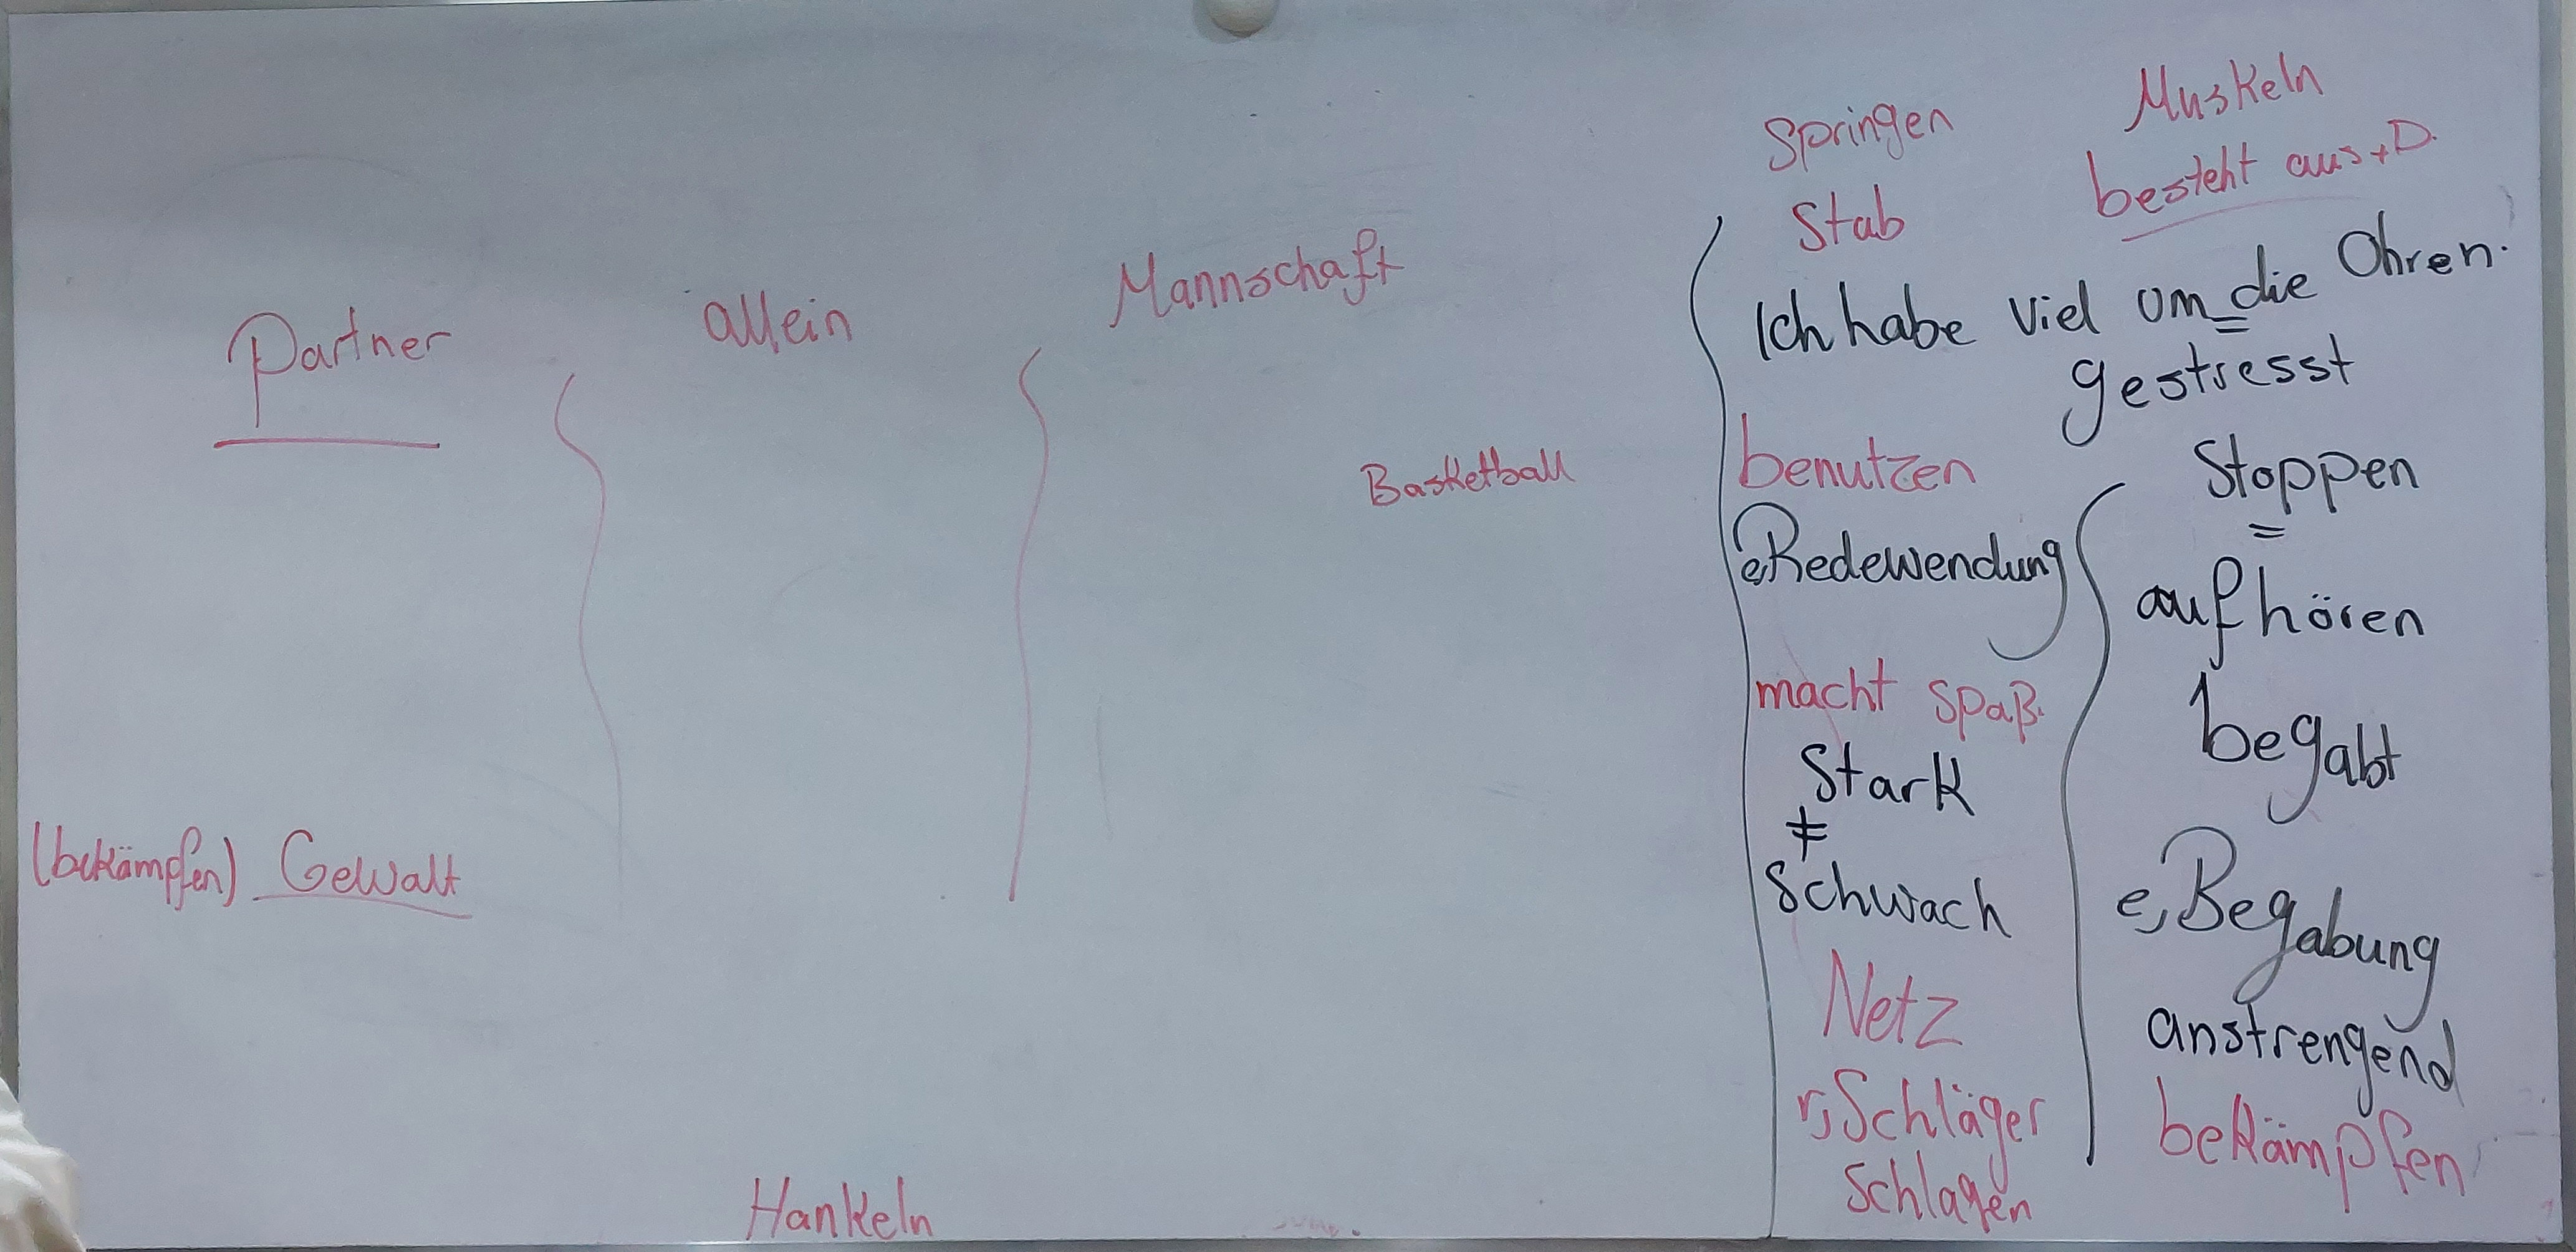 Partner
allein
Mannschaft
Basketball
(bekämpfen) Gewalt
Hankeln
Springen
Stab
Muskeln
besteht aus + D.
Ich habe viel um die Ohren.
=
gestresst
benutzen
e, Redewendung
macht Spaß.
Stark
≠
Schwach
Netz
r, Schläger
Schlagen
Stoppen
=
aufhören
begabt
e, Begabung
anstrengend
bekämpfen